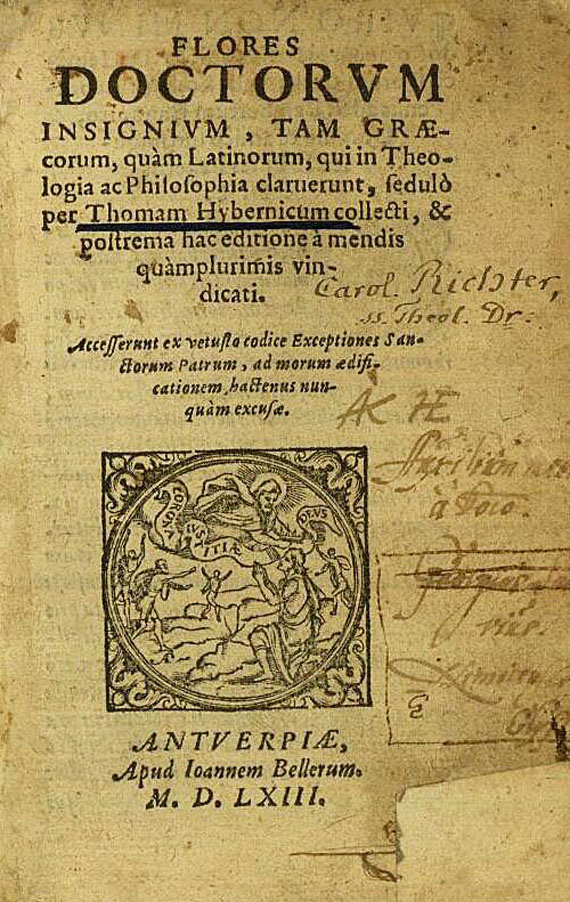 FLORES
DOCTORVM
INSIGNIVM, TAM GRÆ-
corum, quàm Latinorum, qui in Theo-
logia ac Philoſophia claruerunt, ſedulò
per Thomam Hybernicum collecti, &
poſtrema hac editione à mendis
quàmplurimis vin-
dicati.
Carol. Richter,
ss. Theol. Dr:
Acceſſerunt ex vetuſto codice Exceptiones San-
ctorum Patrum, ad morum ædifi-
cationem, hactenus nun-
quàm excuſæ.
CORONA
IVSTITIÆ
DEVS
ANTVERPIÆ,
Apud Ioannem Bellerum.
M. D. LXIII.